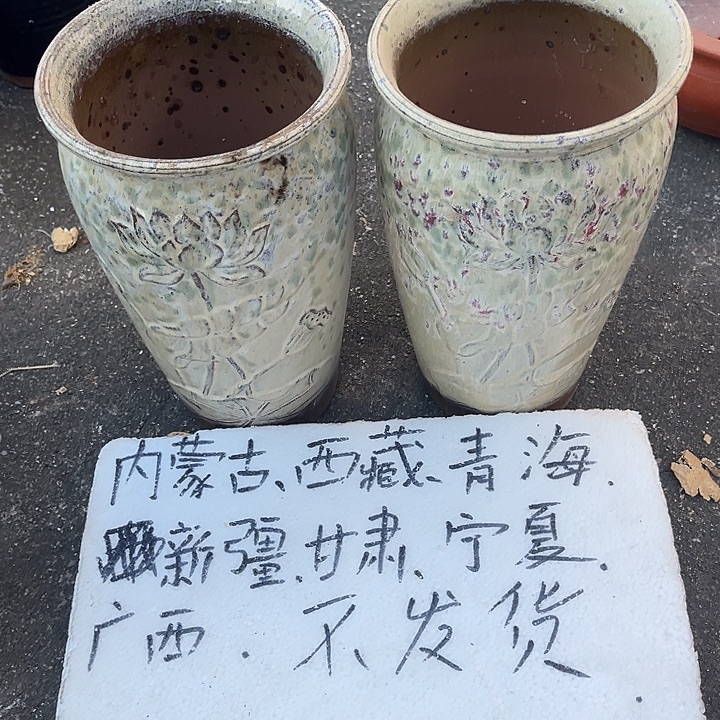 内蒙古、西藏、青海、
新疆、甘肃、宁夏、
广西、不发货